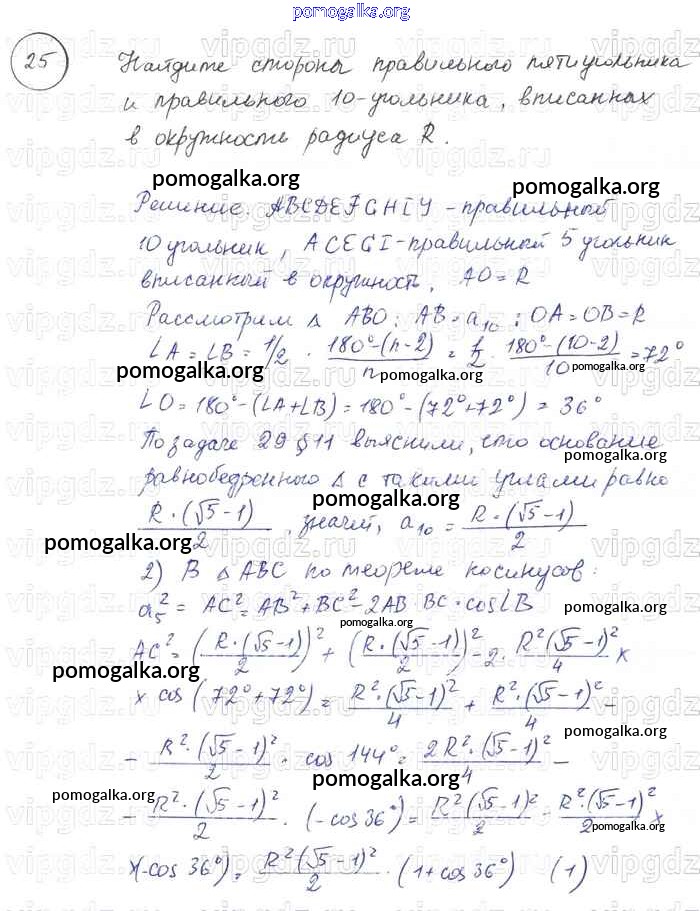 pomogalka.org
25
Найдите стороны правильного пятиугольника
и правильного 10-угольника, вписанных
в окружность радиуса R.
pomogalka.org pomogalka.org
Решение: ABCDEFGHIY - правильный
10 угольник, ACEGI - правильный 5 угольник
вписанный в окружность, AO = R
Рассмотрим △ ABO: AB = a₁₀; OA = OB = R
∠A = ∠B = 1/2 · 180°-(n-2)/n = 1/2 · 180°-(10-2)/10 = 72°
pomogalka.org pomogalka.org
∠O = 180° - (∠A+∠B) = 180° - (72°+72°) = 36°
По задаче 29 § 11 выяснили, что основание
pomogalka.org
равнобедренного △ с такими углами равно
pomogalka.org
R·(√5-1)/2, значит, a₁₀ = R·(√5-1)/2
pomogalka.org pomogalka.org
2) В △ ABC по теореме косинусов:
a₅² = AC² = AB² + BC² - 2AB·BC·cos∠B
pomogalka.org pomogalka.org
AC² = (R·(√5-1)/2)² + (R·(√5-1)/2)² - 2·R²(√5-1)²/4 ×
pomogalka.org
× cos (72°+72°) = R²·(√5-1)²/4 + R²·(√5-1)²/4 -
pomogalka.org
- R²·(√5-1)²/2 · cos 144° = 2R²·(√5-1)²/4 -
pomogalka.org pomogalka.org
- R²·(√5-1)²/2 · (-cos 36°) = R²(√5-1)²/2 - R²·(√5-1)²/2 ×
pomogalka.org
×(-cos 36°) = R²(√5-1)²/2 · (1+cos 36°) (1)
pomogalka.org
vipgdz.ru